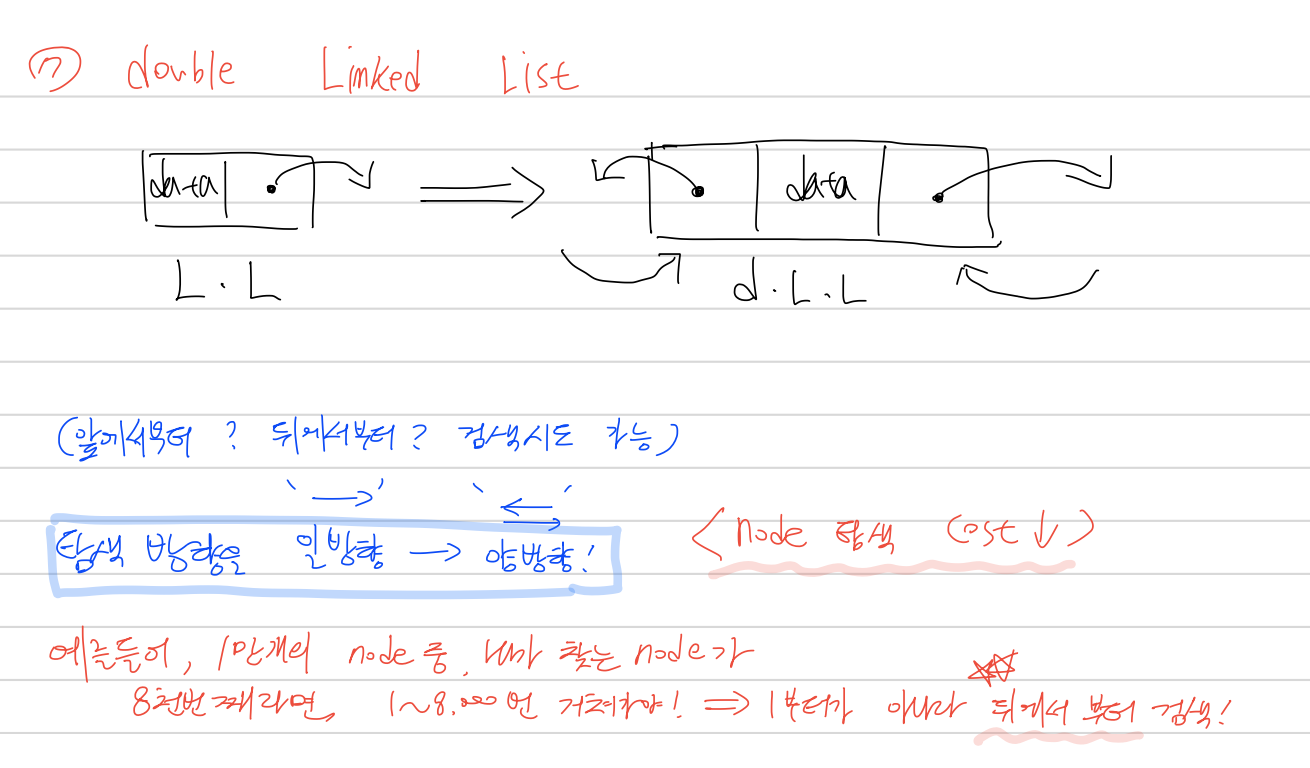 ⑦ double Linked List
data data
L.L d.L.L
(앞에서부터? 뒤에서부터? 검색시도 가능)
탐색 방향을 일방향 → 양방향!
<node 탐색 cost↓>
예를들어, 1만개의 node 중, 내가 찾는 node가
8천번째라면, 1~8,000번 거쳐가야! ⇒ 1부터가 아니라 뒤에서 부터 검색!